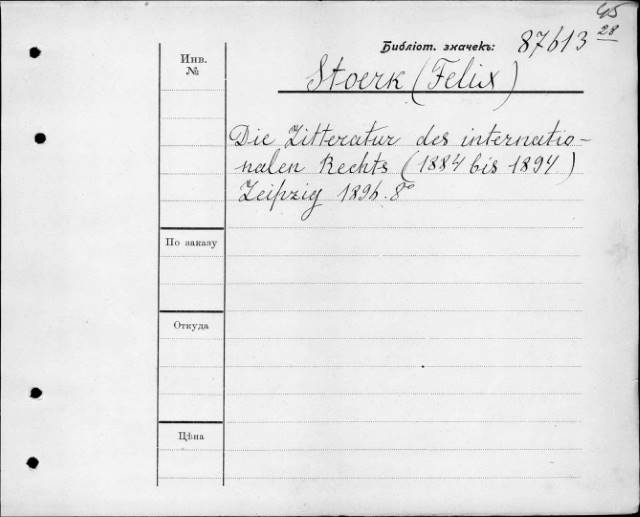 45
28
Библіот. значекъ: 87613
Инв.
№
Stoerk (Felix)
Die Litteratur des internatio-
nalen Rechts (1884 bis 1894)
Leipzig 1896. 8°
По заказу
Откуда
Цѣна